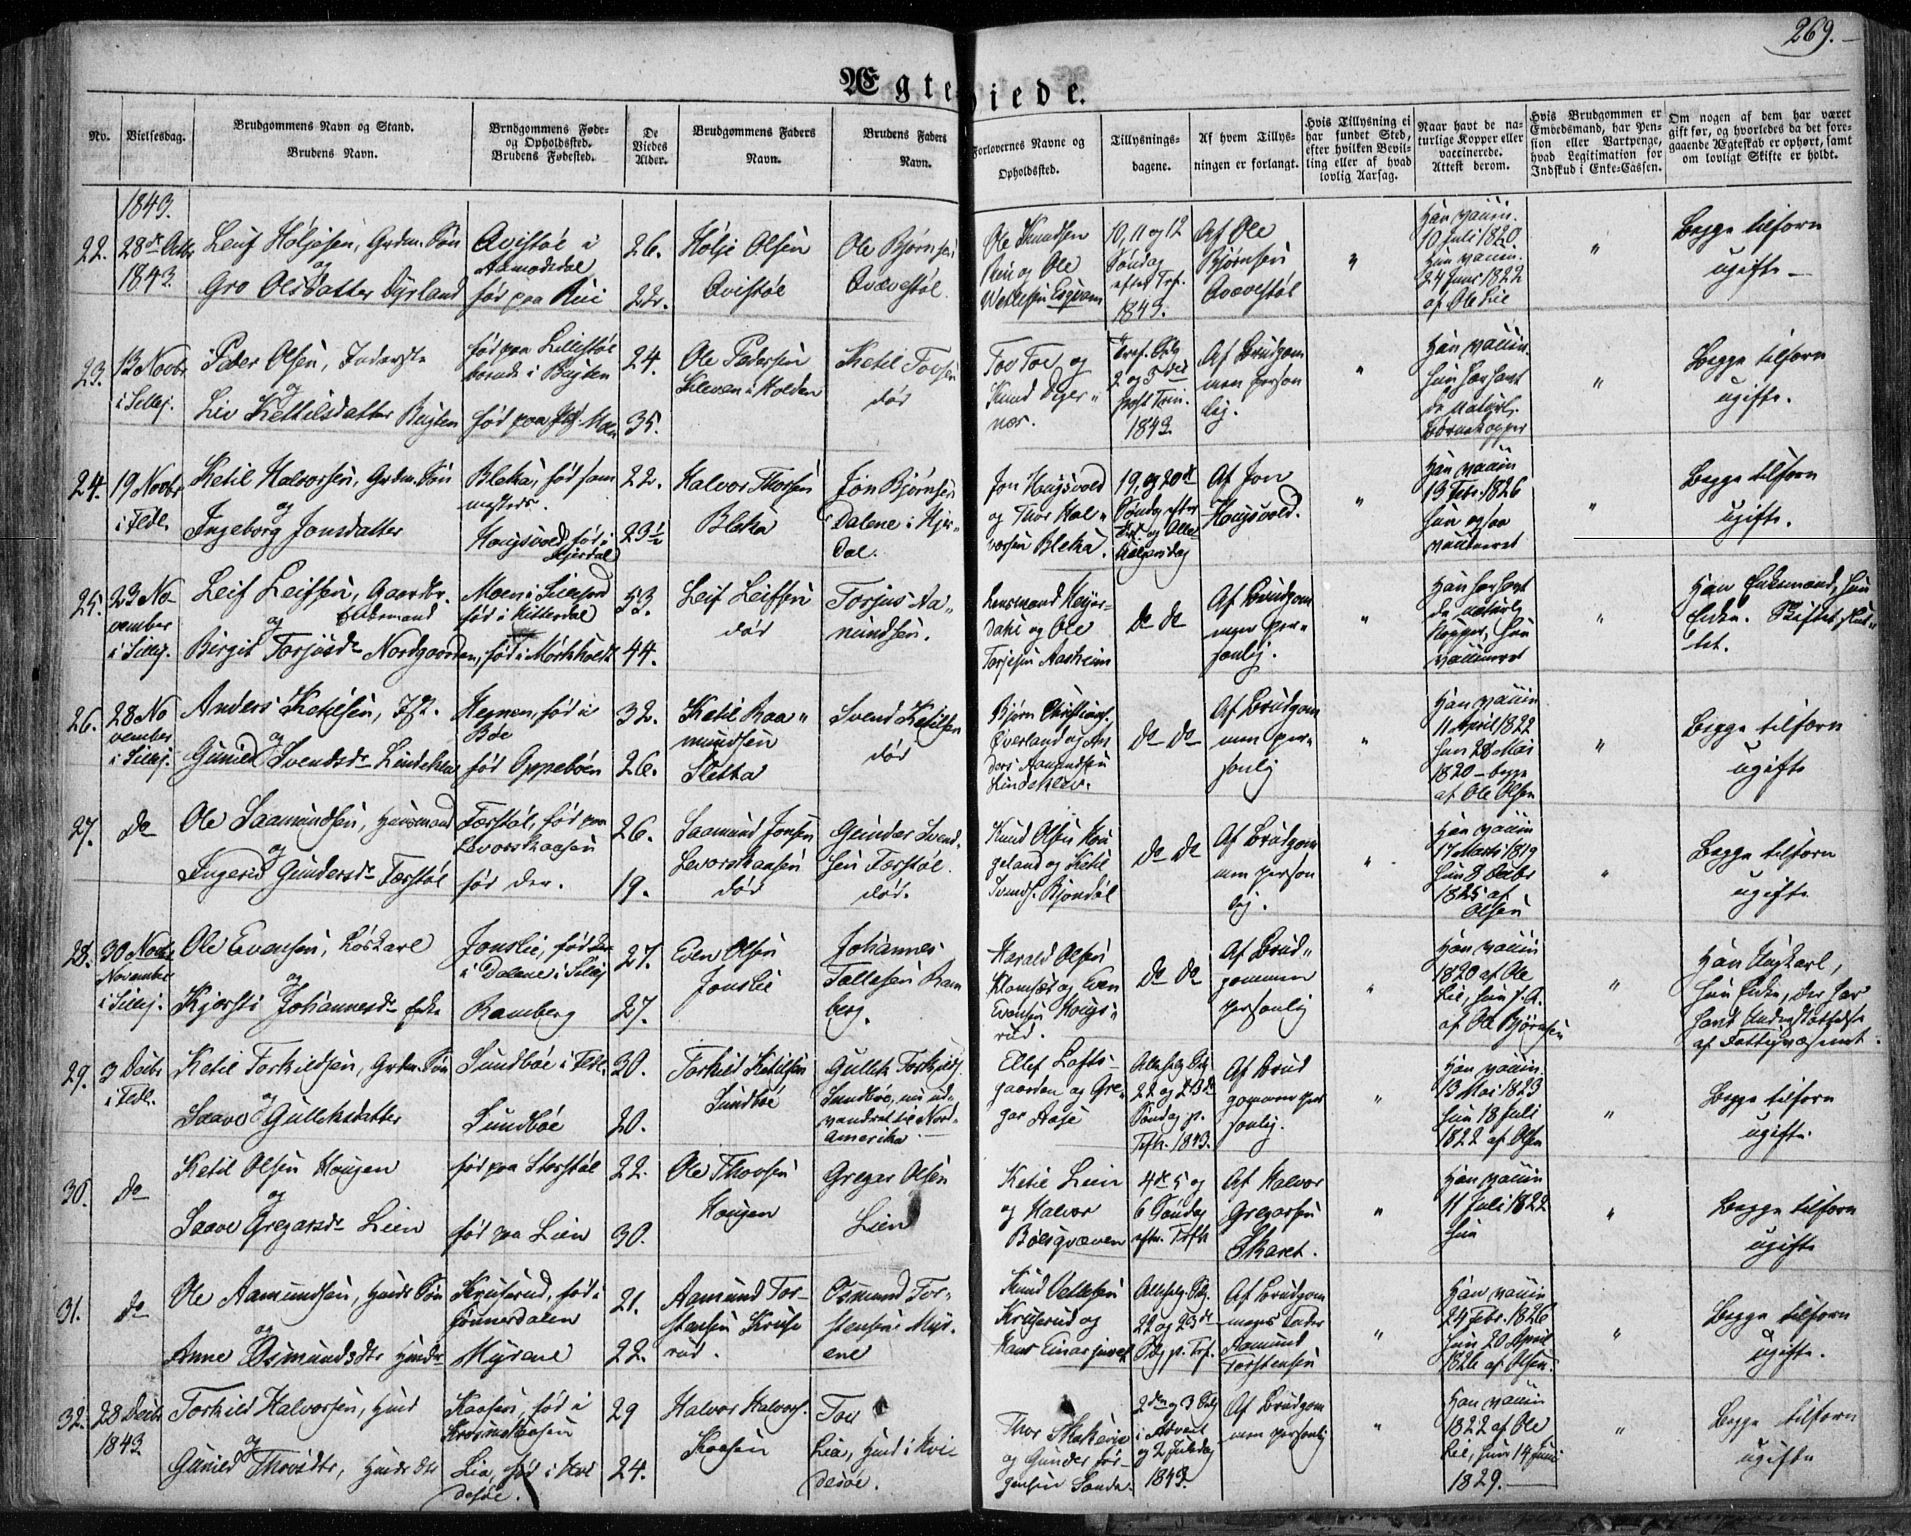 269.
Ægteviede.
No.
Vielsesdag.
Brudgommens Navn og Stand.
Brudens Navn.
Brudgommens Føde-
og Opholdssted.
Brudens Fødested.
De
Viedes
Alder.
Brudgommens Faders
Navn.
Brudens Faders
Navn.
Forlovernes Navne og
Opholdssted.
Tillysnings-
dagene.
Af hvem Tillys-
ningen er forlangt.
Hvis Tillysning ei
har fundet Sted,
efter hvilken Bevil-
ling eller af hvad
lovlig Aarsag.
Naar havt de na-
turlige Kopper eller
vaccinerede.
Attest derom.
Hvis Brudgommen er
Embedsmand, har Pen-
sion eller Vartpenge,
hvad Legitimation for
Indskud i Enke-Cassen.
Om nogen af dem har været
gift før, og hvorledes da det fore-
gaaende Ægteskab er ophørt, samt
om lovligt Skifte er holdt.
1843.
22.
28de Octbr
1843.
Leif Høljesen, Grdm. Søn
og
Gro Olsdatter Dyrland
Avistøl i
Aamodsdal
født paa
26.
22.
Hølje Olsen
Avistøl
Ole Bjørnsen
Ole Knudsen
og Ole
10, 11 og 12
Søndag
efter Tref.
1843.
Af Ole
Bjørnsen
"
Han vaccin.
10 Juli 1820.
Hun vaccin.
24 Juni 1822
af Ole Lie
"
Begge tilforn
ugifte —
23.
13 Novbr
i Sillej.
Peder Olsen, Inderste
og
Liv Kettilsdatter Bugten
24.
35.
Ole Pedersen
Kleven i Holden
Ketil Tovsen
død
Tov Toe og
Knud Djer-
næs.
1843.
Af Brudgom
men person
lig.
"
Han vaccin.
hun har havt
de naturl.
Børnekopper
"
Begge tilforn
ugifte.
24.
19 Novbr
i Fldl.
Ketil Halvorsen, Grdm. Søn
og
Ingeborg Jonsdatter
Bleka, født sam
mesteds.
Hougsvold, født i
Hjerdal
22.
23½
Halvor Thorsen
Bleka
Jon Bjørnsen
Dalene i Hjer-
dal.
Jon Hougsvold
og Thor Hal-
vorsen Bleka.
19, og 20de
Søndag efter
Tref. og Alle
Helgensdag
Af Jon
Hougsvold.
"
Han vaccin
19 Febr. 1826
hun ogsaa
vaccineret
"
Begge tilforn
ugifte.
25.
23 No-
vember
i Sillej.
Leif Leifsen, Gaardbr.
og Enkemand
Birgit Torjusdr Nordgaarden,
Moen i Seljord
født i Hitterdal
født i Mørkholt
53.
44.
Leif Leifsen
død
Torjus Aa-
mundsen.
Lensmand Heijer-
dahl og Ole
Torjesen Aasheim
do do
Af Brudgom
men per-
sonlig.
"
Han har havt
de naturl.
Kopper, hun
vaccineret
"
Han Enkemand, hun
Enke. Skiftet slut-
tet.
26.
28 No
vember
i Sillej.
Anders Ketilsen,
og
Gunild Svendsdr Lindeklev
Hegnen, født i
Bøe
født Oppeboen
32.
26.
Ketil Raa-
mundsen
Sletta
Svend Ketilsen
død
Bjørn Christians.
Øverland og An
ders Aamundsen
Lindeklev.
do do
Af Brudgom
men per-
sonlig
"
Han vaccin
11 April 1822
hun 28 Mai
1820 – begge
af Ole Olsen
"
Begge tilforn
ugifte
27.
do
Ole Saamundsen, Huusmand
og
Ingerid Gundersdr Tørstøl
Tørstøl, født paa
Levorskaasen
født der.
26.
19.
Saamund Jonsen
Levorskaasen
død
Gunder Svend-
sen Tørstøl
død.
Knud Olsen
og Ketil
Svends. Bjøndøl
do do
Af Brudgom
men person
lig.
"
Han vaccin
17 Marts 1819
hun 8 Octbr
1825 af
Olsen
"
Begge tilforn
ugifte
28.
30 Novbr
November
i Sillej.
Ole Evensen, Løskarl
og
Kjersti Johannesdr Enke
Jonslie, født
i Dalene i Sillej
Ramberg
27.
27.
Even Olsen
Jonslie
Johannes
Tollefsen Ram
berg.
Harald Olsen
og Even
Evensen Hougs-
rud.
do do
Af Brud-
gommen
personlig
"
Han vaccin
1820 af Ole
Lie, hun
af Ole Bjørnsen
"
Han Ungkarl,
hun Enke, der har
havt Understøttelse
af Fattigvæsenet.
29.
3 Decbr
i Fldl.
Ketil Torkildsen, Grdm. Søn
og
Saave Gulleksdatter
Sundbøe i Fldl.
Sundbøe
30.
20.
Torkild Ketilsen
Sundbøe
Gullek Torkilds.
Sundbøe, nu ud-
vandret til Nord-
Amerika.
Ellef Lofts-
gaarden og Gre-
gar Haje
22 og 23de
Søndag p.
Tref. 1843.
Af Brud
gommen per
sonlig.
"
Han vaccin.
13 Mai 1823
hun 18 Juli
1822 af Olsen
"
Begge tilforn
ugifte.
30.
do
Ketil Olsen Hougen
og
Saave Gregarsdr Lien
født paa Storstøl
født paa Lien
22.
30.
Ole Thovsen
Hougen
Gregar Olsen
Lien
Ketil Lien
og Halvor
4de 5 og
6 Søndag
eft. Tref.
Af Halvor
Gregarsen
Skaret.
"
Han vaccin
11 Juli 1822
hun
"
Begge tilforn
ugifte
31.
do
Ole Aamundsen, Huusm. Søn
og
Anne Osmundsdtr
Kruserud, født i
Myrene
21.
22.
Aamund Tor-
stensen Kruse
rud.
Osmund Tor-
stensen Myr-
ene
Knud Vettesen
Kruserud og
Hans Einarsjuvet
22 og 23de
Sdg p. Tref.
Af Brudgom
mens Fader
Aamund
Torstensen
"
Han vaccin
24 Febr. 1826
hun 20 April
1826 af Olsen.
"
Begge tilforn
ugifte.
32.
28 Decbr
1843
Torkild Halvorsen,
og
Gunild Thovsdtr,
Kaasen, født i
Lia, født i Hvi
desøe.
29
24.
Halvor Halvors.
Kaasen
Tov
Lia, i Hvi
desøe.
Thor
og Gunder Jør-
gensen Sanda.
2den og 3 Sdg
i Advent
og 2 Juledag
1843.
Af Brudgom
men personlig
"
Han vaccin
1822 af Ole
Lie, hun 14 Juni
1829. —
"
Begge tilforn
ugifte